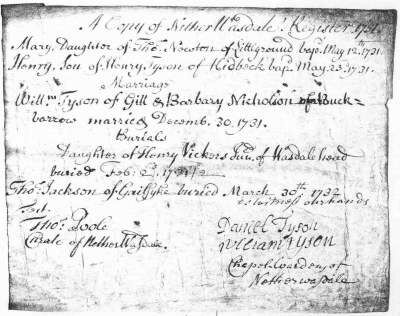 A Copy of Nether Wasdale Register 1731.
Mary, Daughter of Thos. Newton of Gillground bapd. May 12th, 1731.
Henry, Son of Henry Tyson of Kidbeck bapd. May 23d, 1731.
Marriage
Willm. Tyson of Gill & Barbary Nicholson of Buck-
barrow married Decemb. 30, 1731.
Burials
Daughter of Henry Vickers Junr. of Wasdale head
buried Feb. 2d, 1731/2
Thos. Jackson of buried March 30th 1732
as witness our hands
Test.
Thos. Poole
Curate of Nether Wasdale.
Daniel Tyson
William Tyson
Chapel wardens of
Netherwasdale